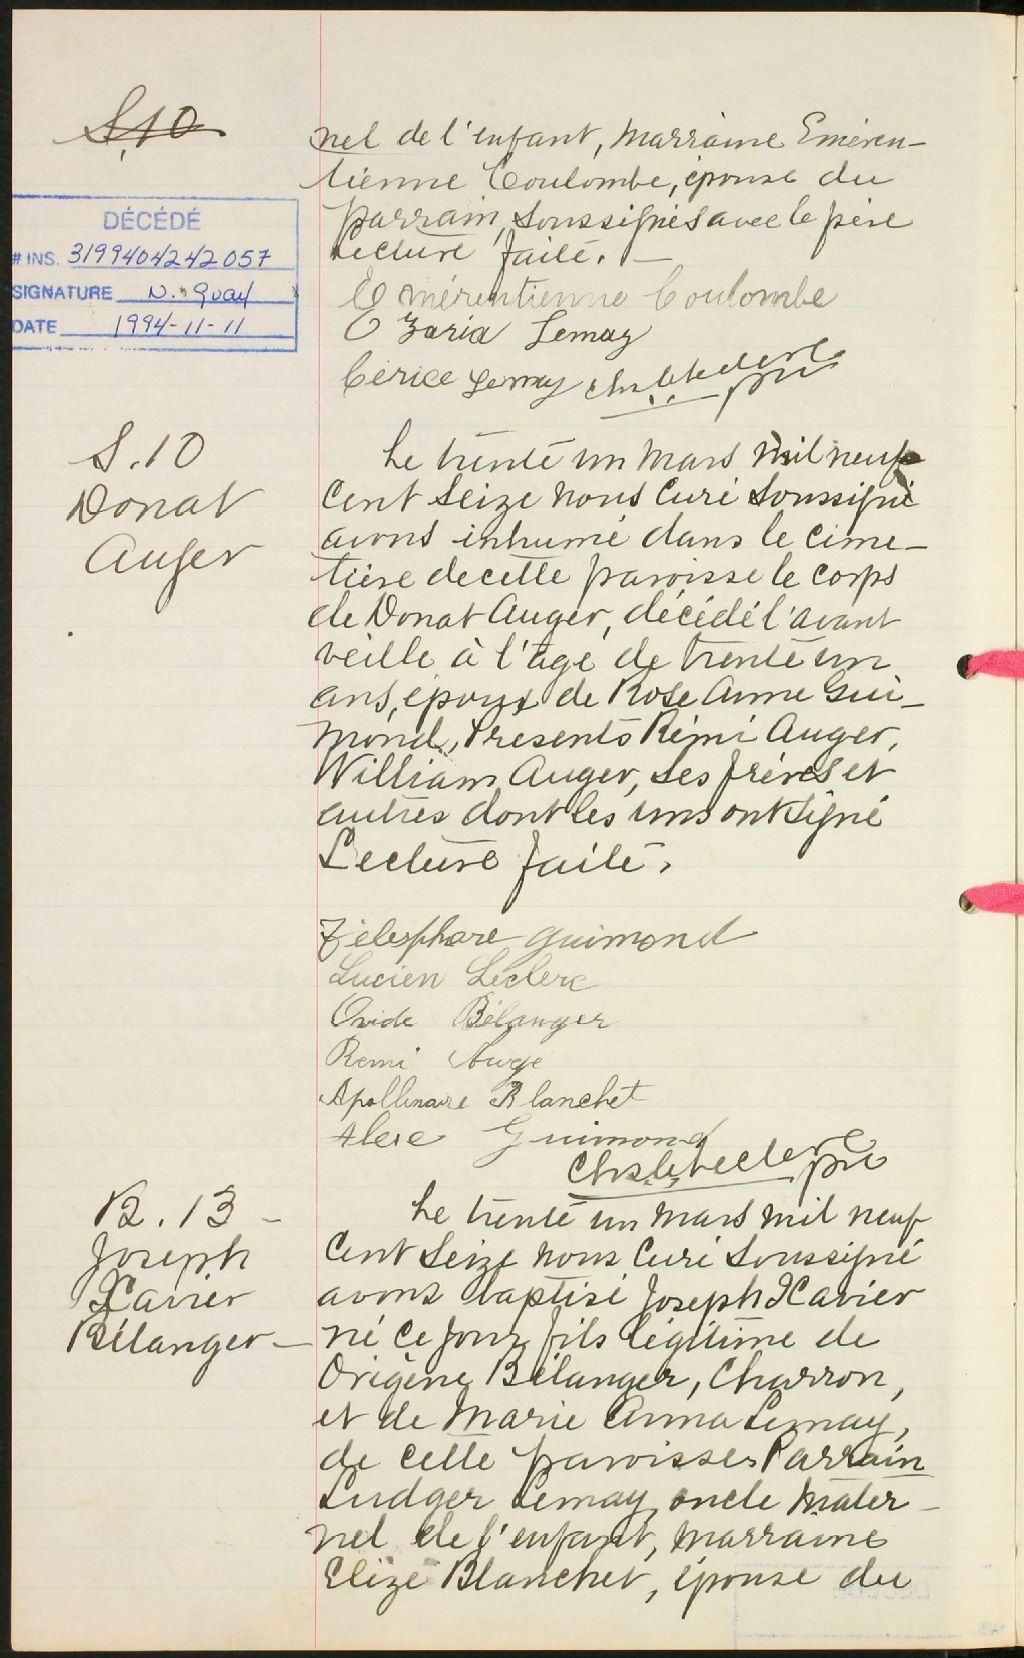 S.10
nel de l'enfant, Marraine Eméren-
tienne Coulombe, épouse du
parrain, soussignés avec le père
Lecture faite. —
DÉCÉDÉ
# INS. 3199404242057
SIGNATURE N. Guay
DATE 1994-11-11
Emérentienne Coulombe
Ozaria Lemay
Cérice Lemay Chs Leclerc ptre
S.10
Donat
Auger
Le trente un Mars Mil neuf
Cent Seize nous Curé Soussigné
avons inhumé dans le cime-
tière de cette paroisse le corps
de Donat Auger, décédé l'avant
veille à l'âge de trente un
ans, époux de Rose Anna Gui-
mond, Présents Rémi Auger,
William Auger, ses frères et
autres dont les uns ont signé
Lecture faite.
Télesphore Guimond
Lucien Leclerc
Ovide Bélanger
Remi Auge
Apollinaire Blanchet
Guimond
Chs Leclerc ptre
B. 13 -
Joseph
Xavier
Bélanger —
Le trente un Mars mil neuf
Cent Seize nous Curé Soussigné
avons baptisé Joseph Xavier
né ce jour, fils légitime de
Origène Bélanger, Charron,
et de Marie Anna Lemay,
de cette paroisse. Parrain
Ludger Lemay, oncle Mater-
nel de l'enfant, marraine
Elize Blanchet, épouse du